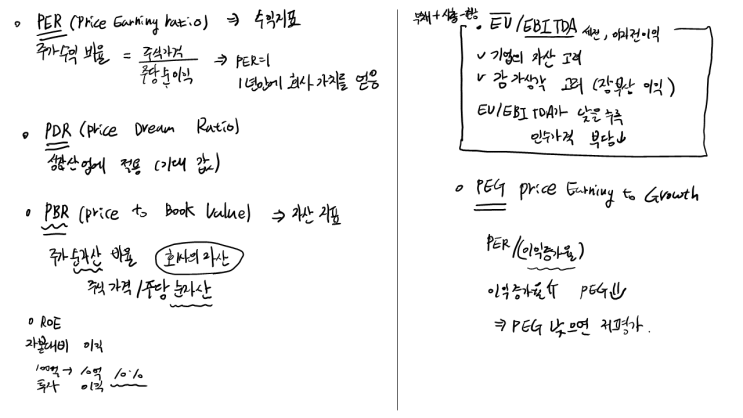 PER (Price Earning ratio) ⇒ 수익지표
주가수익 비율 = 주식가격 / 주당 순이익 ⇒ PER=1
1년만에 회사 가치를 얻음
PDR (Price Dream Ratio)
성장산업에 적용 (기대 값)
PBR (price to Book Value) ⇒ 자산 지표
주가순자산 비율 회사의 자산
주식 가격 / 주당 순자산
ROE
자본대비 이익
100억 → 10억 10%
투자 이익
부채 + 시총 - 현금
EV/EBITDA 세전, 이자전이익
✓ 기업의 자산 고려
✓ 감가상각 고려 (장부상 이익)
EV/EBITDA가 낮을수록
인수가격 부담↓
PEG price Earning to Growth
PER/(이익증가율)
이익증가율⇑ PEG⇓
⇒ PEG 낮으면 저평가.